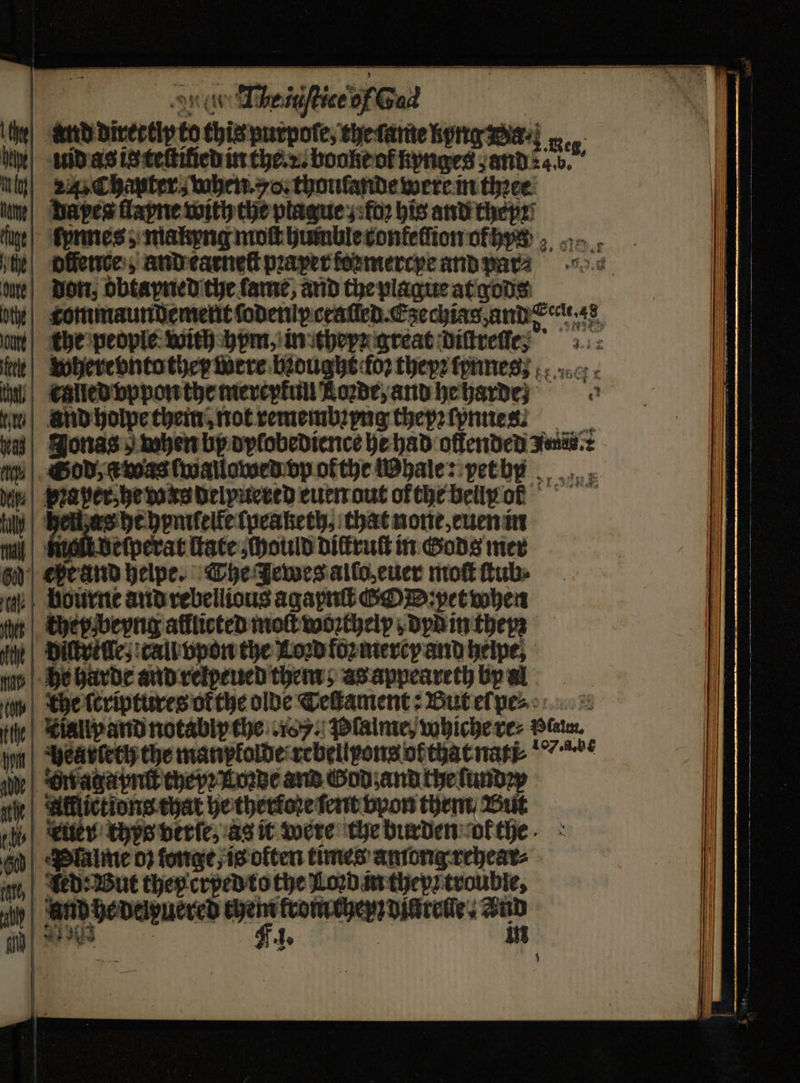 The iustice of God
and directly to this purpose, the same kyng Da-
uid as is testified in the .2. booke of kynges, and
24. Chapter, when .70. thousande were in three
dayes slayne with the plague, for his and theyr
synnes, makyng most humble confession of hys
offence, and earnest prayer for mercye and par-
don, obtayned the same, and the plague at gods
commaundement sodenly ceassed. Ezechias, and
the people with hym, in theyr great distresse,
wherevnto they were brought for theyr synnes,
called vppon the mercyfull Lorde, and he harde,
and holpe them, not remembryng theyr synnes.
Jonas, when by dysobedience he had offended
God, & was swallowed vp of the Whale: yet by
prayer, he was delyuered euen out of the belly of
hell, as he hymselfe speaketh, that none, euen in
most desperat state, should distrust in Gods mer
cye and helpe. The Jewes also, euer most stub-
bourne and rebellious agaynst GOD: yet when
they, beyng afflicted most worthely, dyd in theyr
distresse, call vpon the Lord for mercy and helpe,
he harde and relpeued them, as appeareth by al
the scriptures of the olde Testament: But espe-
cially and notably the .107. Psalme, whiche re-
hearseth the manyfolde rebellyons of that nati-
on agaynst theyr Lorde and God, and the sundry
afflictions that he therfore sent vpon them, But
euer thys verse, as it were the burden of the
Psalme or songe, is often times among rehear-
sed: But they cryed to the Lord in theyr trouble,
and he delyuered them from theyr distresse, And
F.1. in
Reg.
24.b.
Eccle.48
Jonas.2
Psalm.
107.a.b